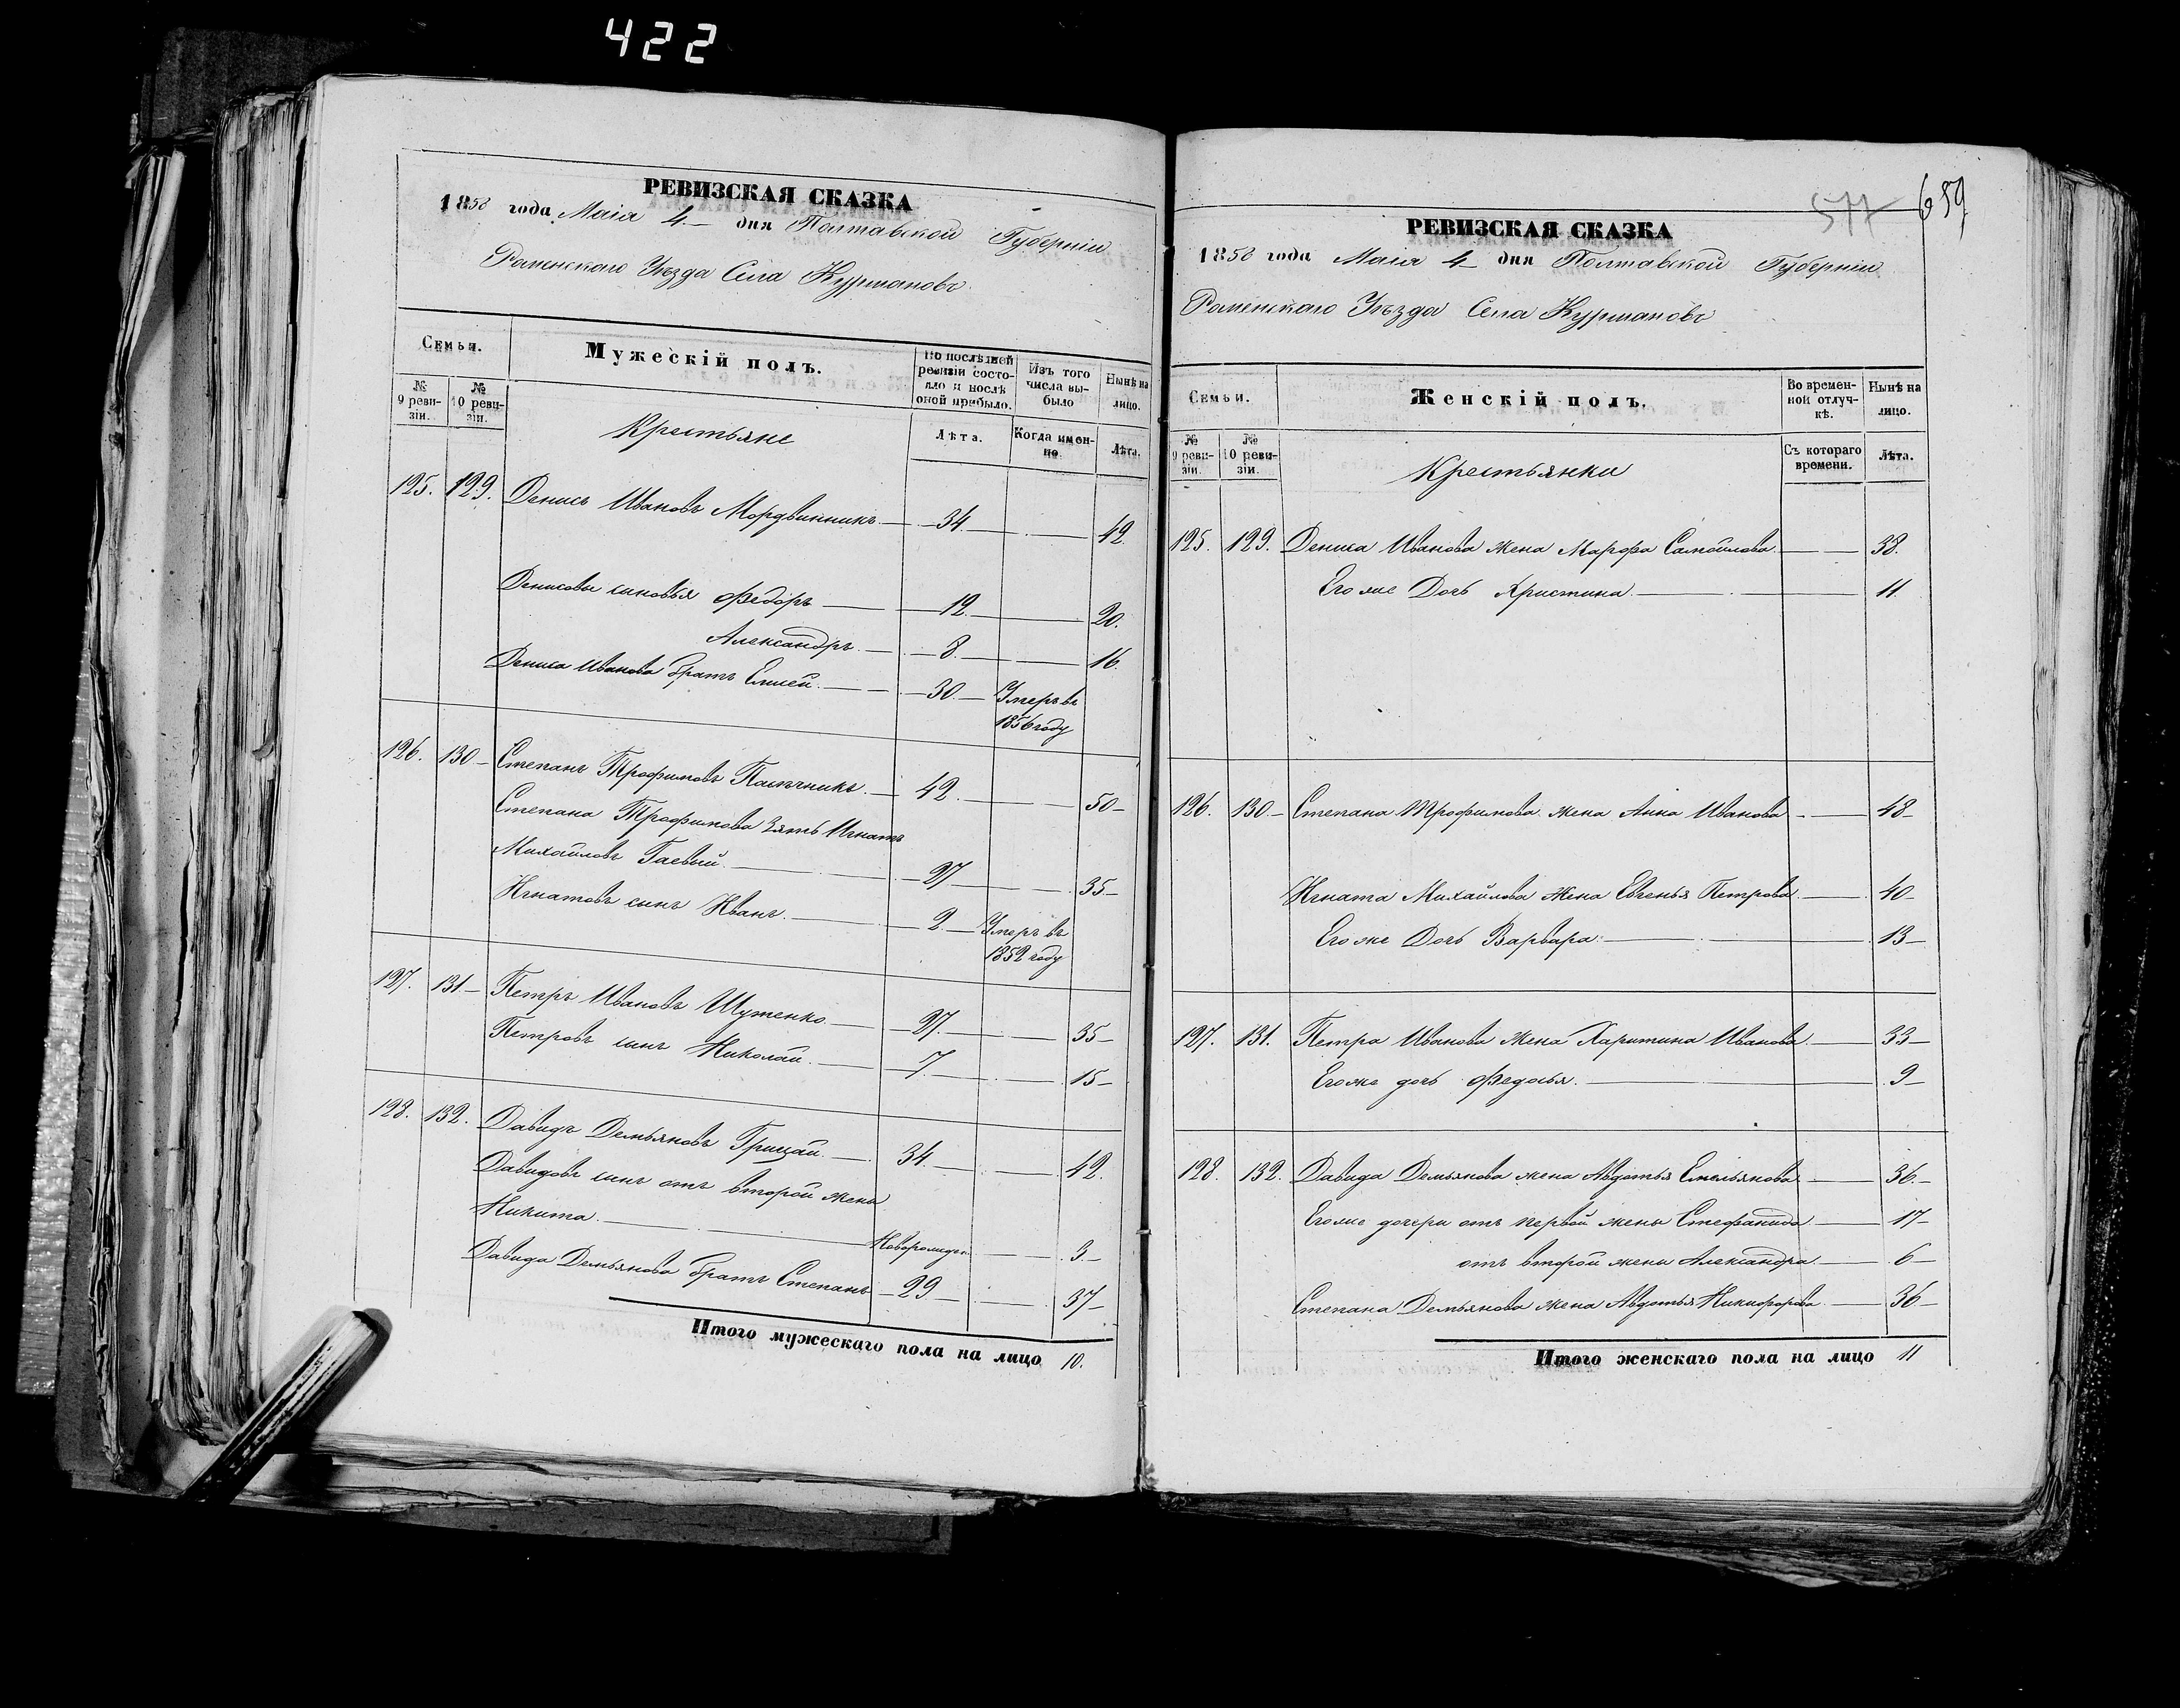 422
РЕВИЗСКАЯ СКАЗКА
1858 года Маія 4 дня Полтавской Губерніи
Роменскаго Уѣзда Села Курмановъ
Семьи. Мужескій полъ. По послѣдней ревизіи состояло и послѣ оной прибыло. Изъ того числа выбыло Нынѣ на лицо.
№ 9 ревизіи. № 10 ревизіи. Крестьяне Лѣта. Когда именно. Лѣта.
125. 129. Денисъ Ивановъ Мордвинникъ 34. 42.
Денисовы сыновья Федоръ 12. 20.
Александръ 8. 16.
Дениса Иванова братъ Елисей 30. Умеръ въ
1856 году
126. 130 Степанъ Трофимовъ Пасѣчникъ 42. 50
Степана Трофимова Зять Игнатъ
Михайловъ Гаевый 27 35
Игнатовъ сынъ Иванъ 2 Умеръ въ
1852 году
127. 131 Петръ Ивановъ Шутенко 27. 35
Петровъ сынъ Николай 7. 15
128. 132. Давидъ Демьяновъ Грицай 34. 42.
Давидовъ сынъ отъ второй жены
Никита Новорожден 3
Давида Демьянова братъ Степанъ 29 37
Итого мужескаго пола на лицо 10.
577 659
РЕВИЗСКАЯ СКАЗКА
1858 года Маія 4 дня Полтавской Губерніи
Роменскаго Уѣзда Села Курмановъ
Семьи. Женскій полъ. Во временной отлучкѣ. Нынѣ на лицо.
№ 9 ревизіи. № 10 ревизіи. Крестьянки Съ котораго времени. Лѣта.
125. 129. Дениса Иванова жена Марфа Самойлова 38.
Его же Дочь Христина 11.
126. 130. Степана Трофимова жена Анна Иванова 48
Игната Михайлова жена Евгенья Петрова 40
Его же Дочь Варвара 13
127. 131. Петра Иванова жена Харитина Иванова 33
Егоже дочь Федосья 9
128. 132. Давида Демьянова жена Авдотья Емельянова 36
Егоже дочери отъ первой жены Стефанида 17
отъ второй жены Александра 6
Степана Демьянова жена Авдотья Никифорова 36
Итого женскаго пола на лицо 11